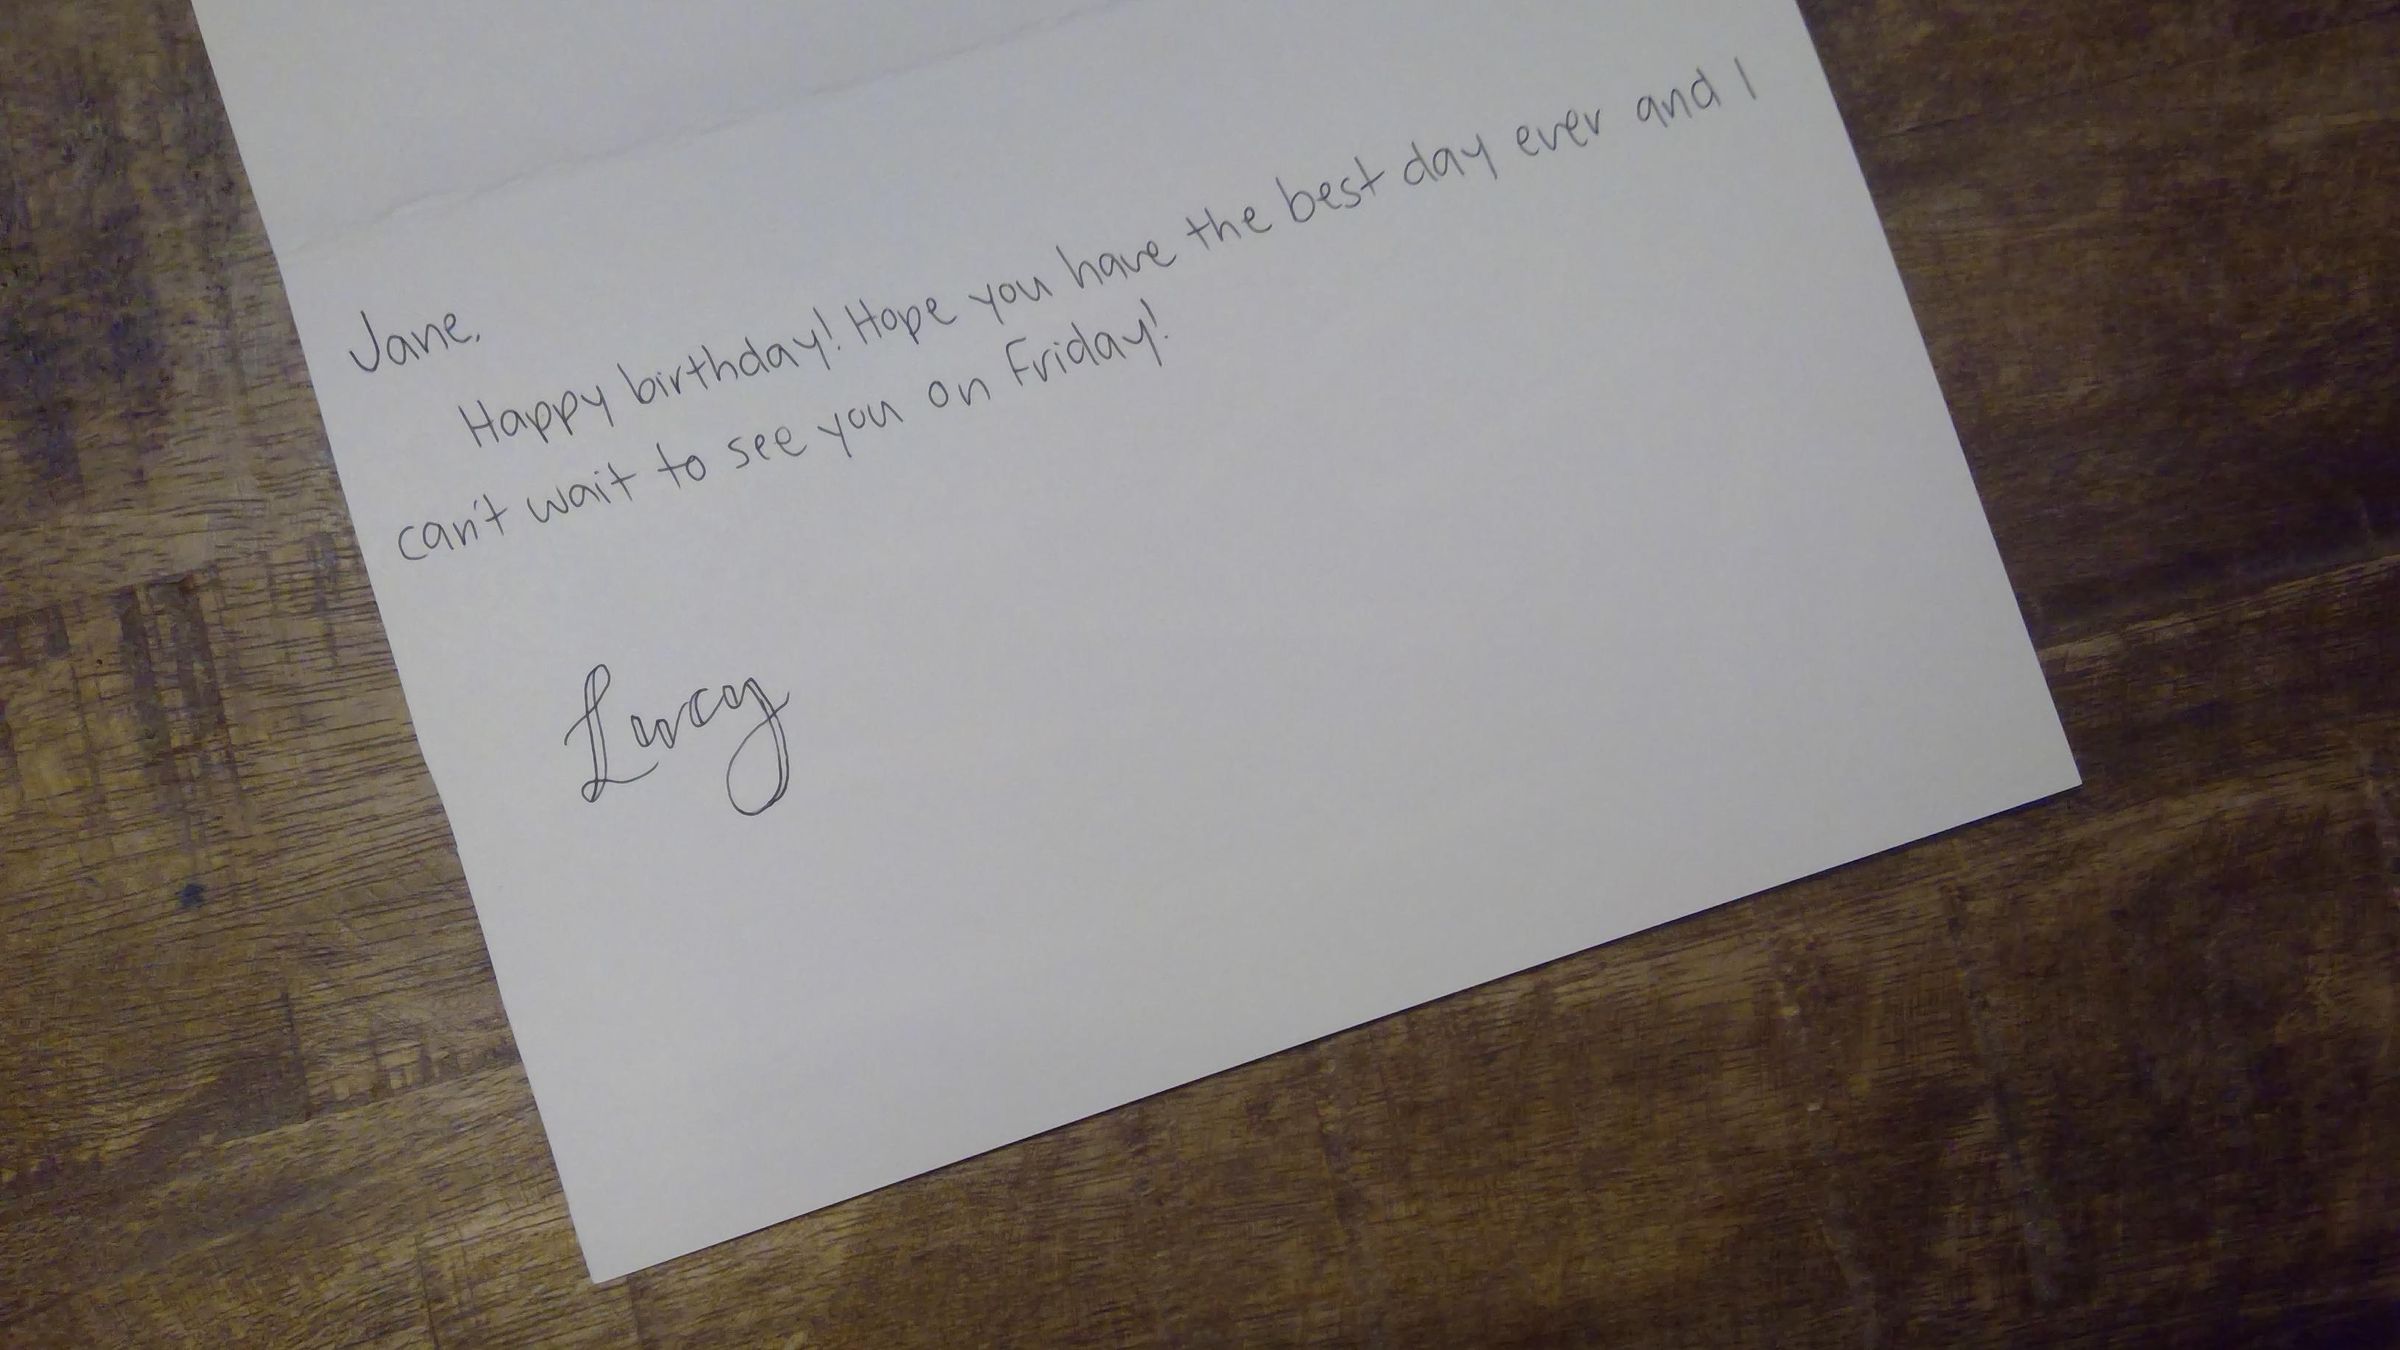 Jane,
Happy birthday! Hope you have the best day ever and I
can't wait to see you on Friday!
Lucy